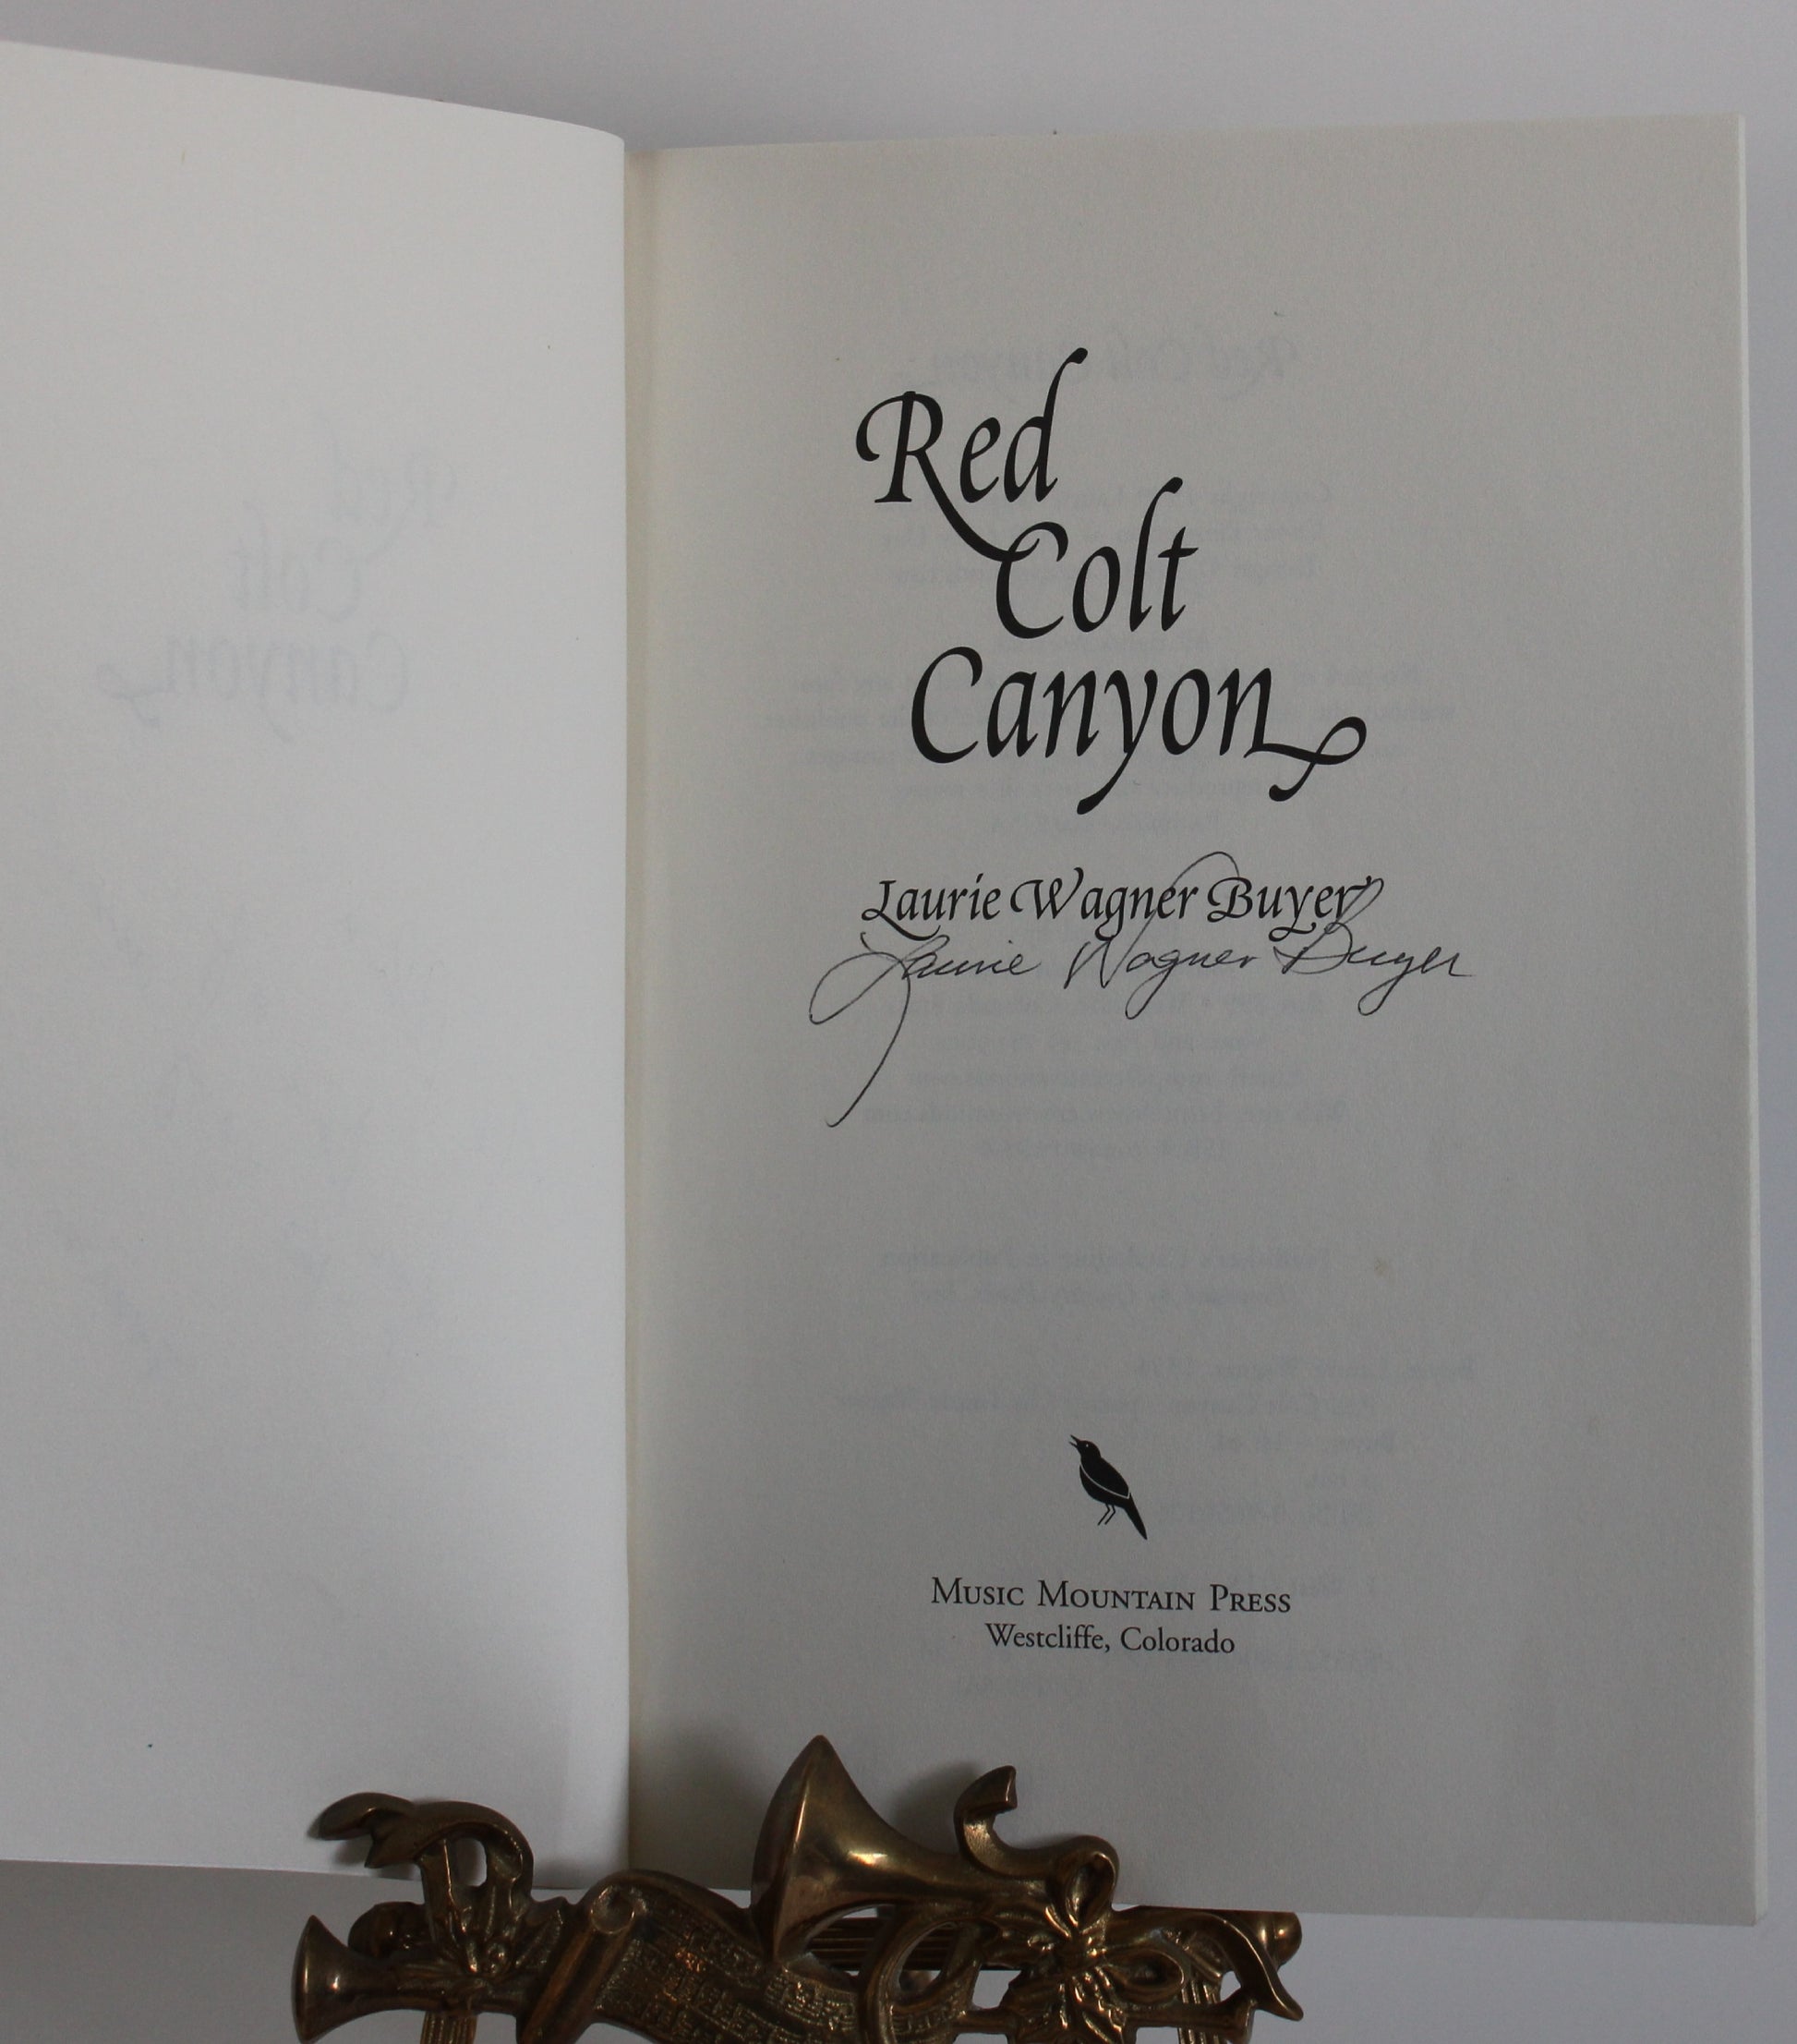 Red
Colt
Canyon
Laurie Wagner Buyer
Laurie Wagner Buyer
MUSIC MOUNTAIN PRESS
Westcliffe, Colorado